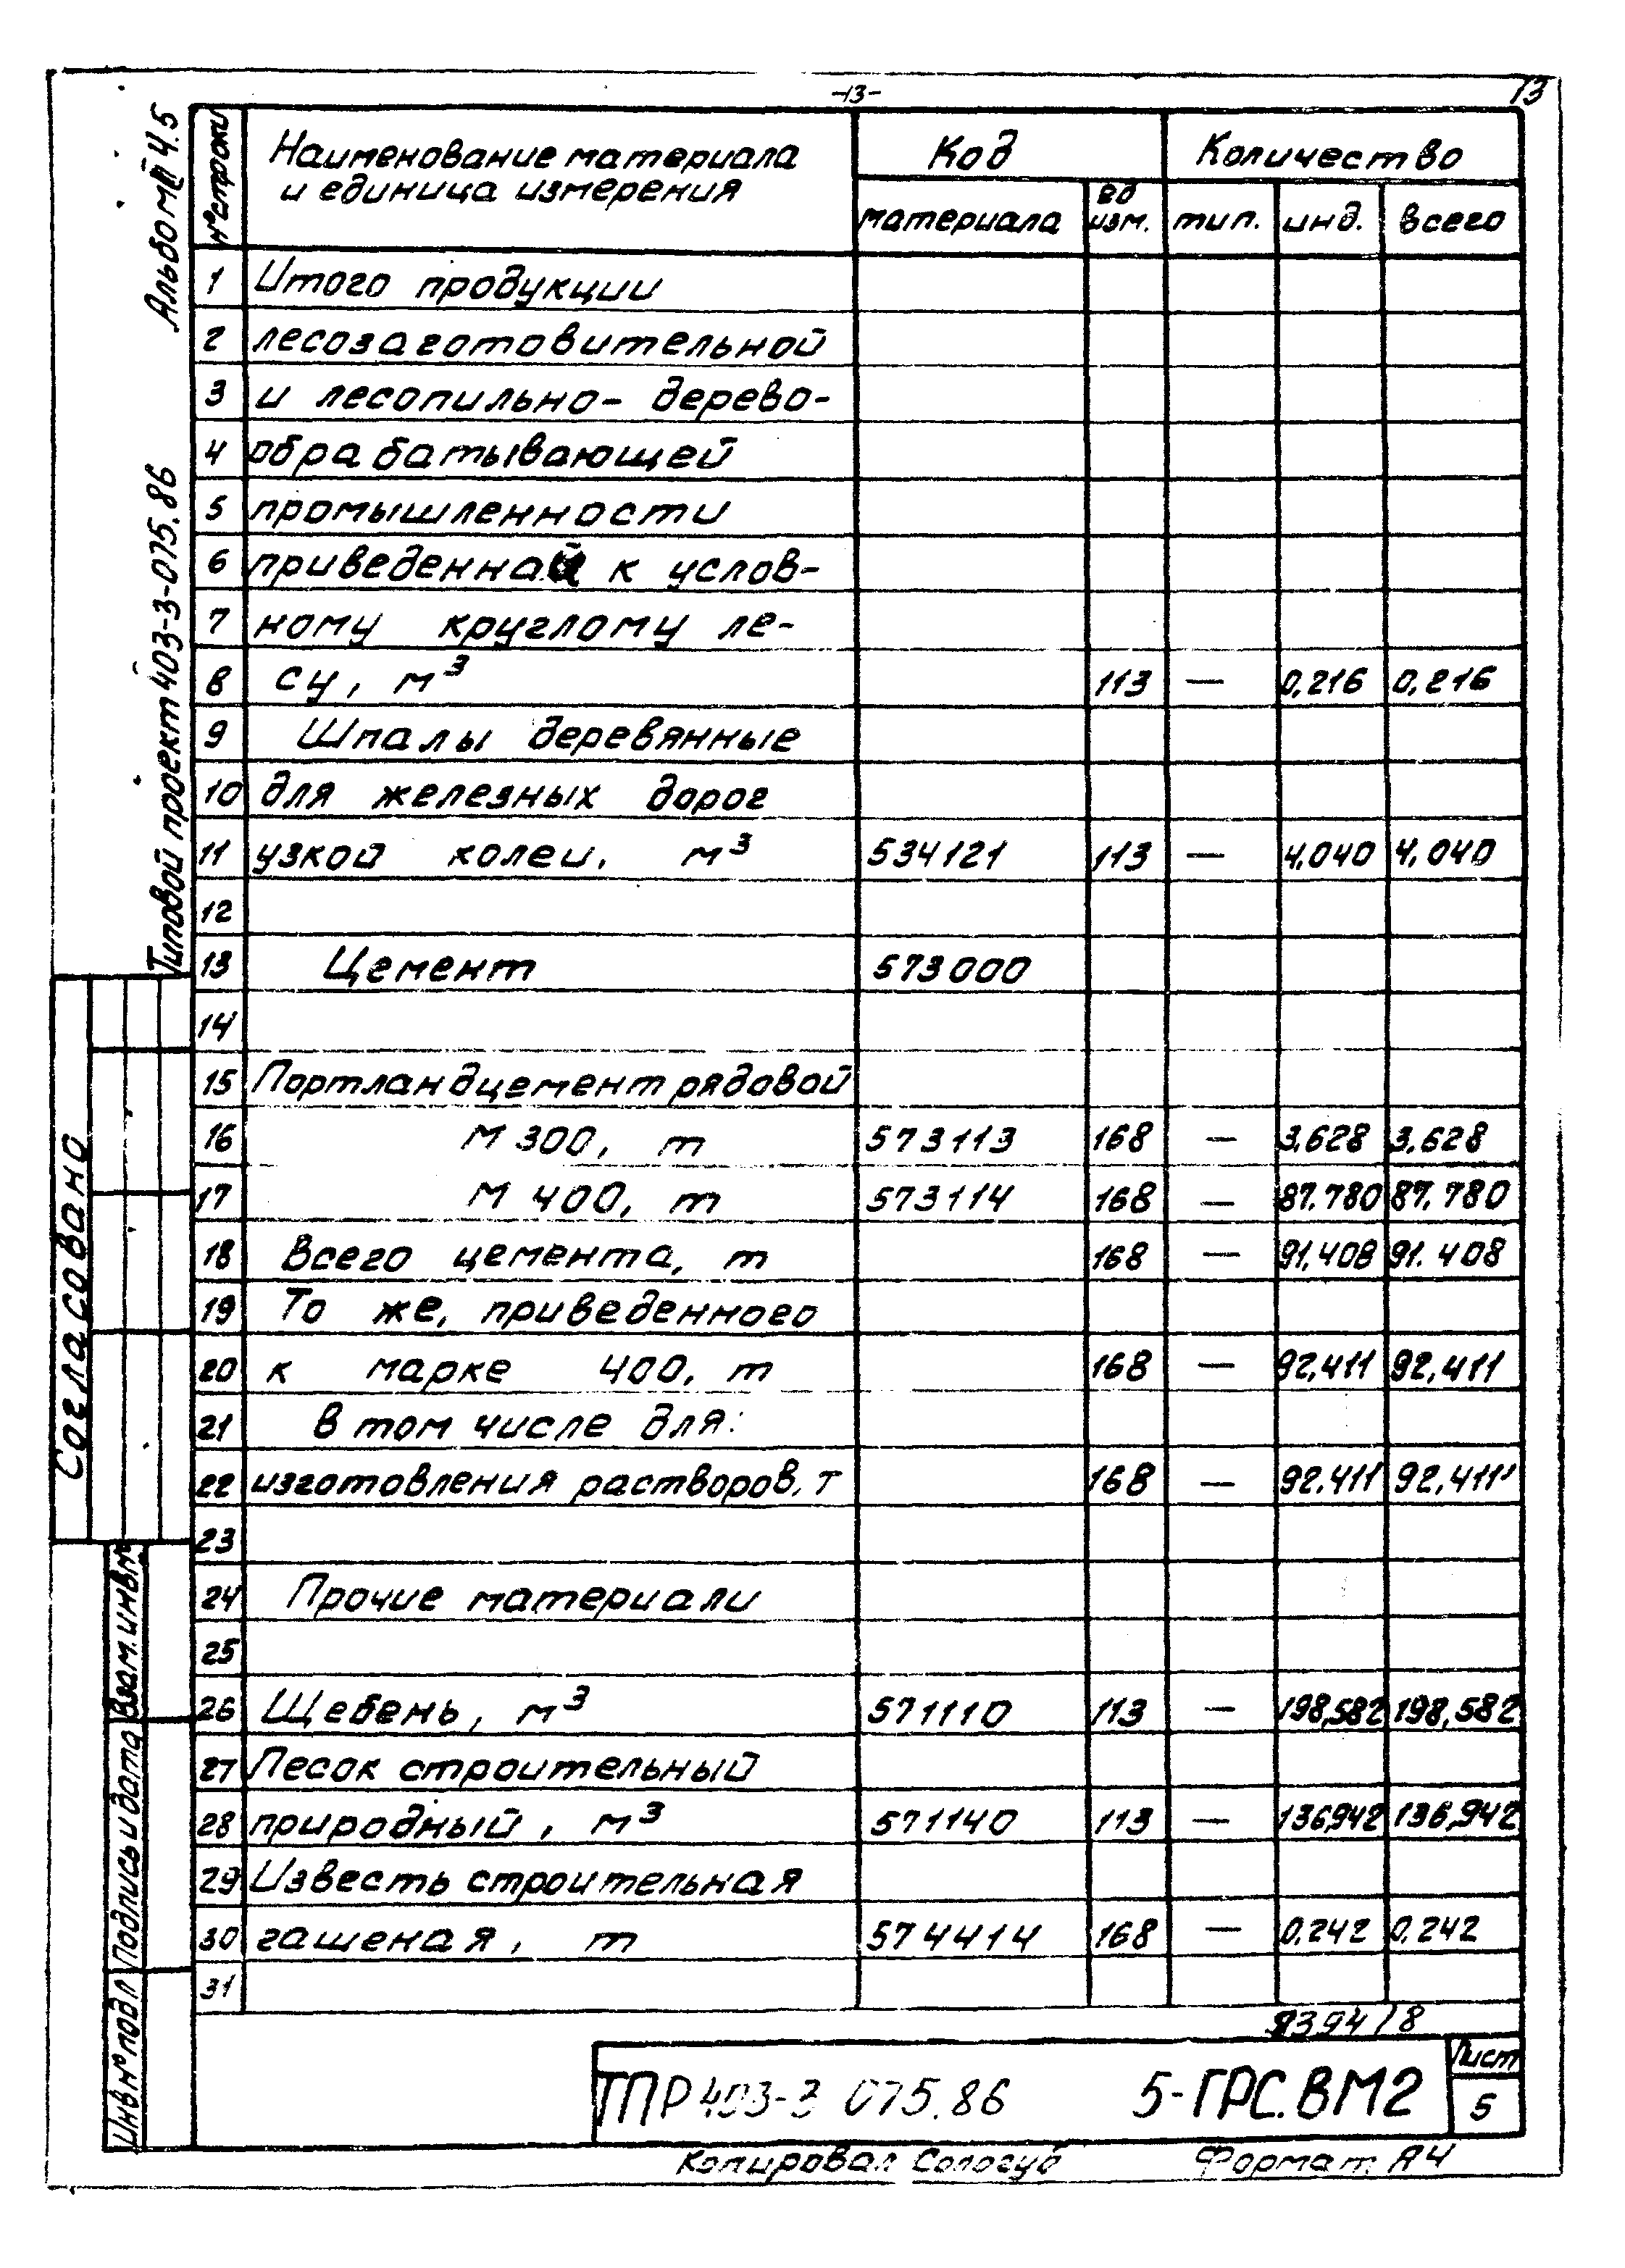 -13-
13
Альбом VII ч.5
Типовой проект 403-3-075.86
№ строки
Наименование материала
и единица измерения
Код
Количество
материала
ед
изм.
тип.
инд.
всего
1 Итого продукции
2 лесозаготовительной
3 и лесопильно-дерево-
4 обрабатывающей
5 промышленности
6 приведенной к услов-
7 ному круглому ле-
8 су, м³ 113 — 0,216 0,216
9 Шпалы деревянные
10 для железных дорог
11 узкой колеи, м³ 534121 113 — 4,040 4,040
12
13 Цемент 573000
14
15 Портландцемент рядовой
16 М 300, т 573113 168 — 3,628 3,628
17 М 400, т 573114 168 — 87.780 87.780
18 Всего цемента, т 168 — 91,408 91.408
19 То же, приведенного
20 к марке 400, т 168 — 92,411 92,411
21 В том числе для:
22 изготовления растворов, т 168 — 92.411 92,411
23
24 Прочие материали
25
26 Щебень, м³ 571110 113 — 198,582 198,582
27 Песок строительный
28 природный, м³ 571140 113 — 136,942 136,942
29 Известь строительная
30 гашеная, т 574414 168 — 0,242 0,242
31
Согласовано
Взам. инв №
Подпись и дата
Инв № подл
9394/8
ТПР 403-3 075.86
5-ГРС.ВМ2
Лист
5
Копировал Сологуб
Формат А4